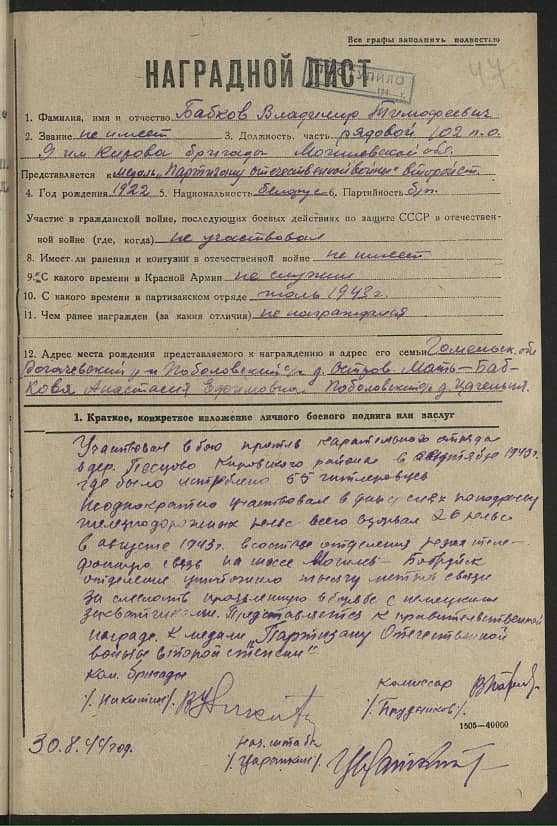 Все графы заполнить полностью
НАГРАДНОЙ ЛИСТ
ПОСТУПИЛО
47
1. Фамилия, имя и отчество Бабков Владимир Тимофеевич
2. Звание не имеет 3. Должность, часть рядовой 102 п.о.
9 им Кирова бригады Могилевской обл.
Представляется к медаль „Партизану отечественной войны" второй ст.
4. Год рождения 1922 5. Национальность белорус 6. Партийность б/п.
Участие в гражданской войне, последующих боевых действиях по защите СССР в отечествен-
ной войне (где, когда) не участвовал
8. Имеет ли ранения и контузии в отечественной войне не имеет
9. С какого времени в Красной Армии не служил
10. С какого времени в партизанском отряде июль 1943 г.
11. Чем ранее награжден (за какия отличия) не награждался
12. Адрес места рождения представляемого к награждению и адрес его семьи Гомельск. обл
Рогачевский р-н Поболовский с/с д. Остров. Мать — Баб-
кова Анастасия Поболовский д.
1. Краткое, конкретное изложение личного боевого подвига или заслуг
Участвовал в бою против карательного отряда
в дер. Кировского района в сентябре 1943 г.
где было истреблено 55 гитлеровцев
Неоднократно участвовал в по подрыву
железнодорожных рельс всего взорвал 26 рельс
в августе 1943 г. в составе отделения резал теле-
фонную связь на шоссе Могилев — Бобруйск
отделение уничтожило тысячу метров связи
За смелость проявленную в борьбе с немецкими
захватчиками. Представляется к правительственной
награде. К медали „Партизану Отечественной
войны второй степени"
Ком. бригады
/Никитин/.
комиссар
/Прудников/.
1505—40000
30.8.44 год.
Нач. штаба